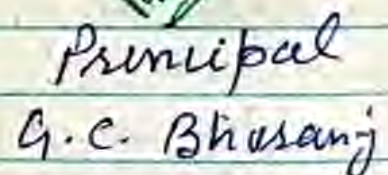 Principal
G.C. Bhasanj